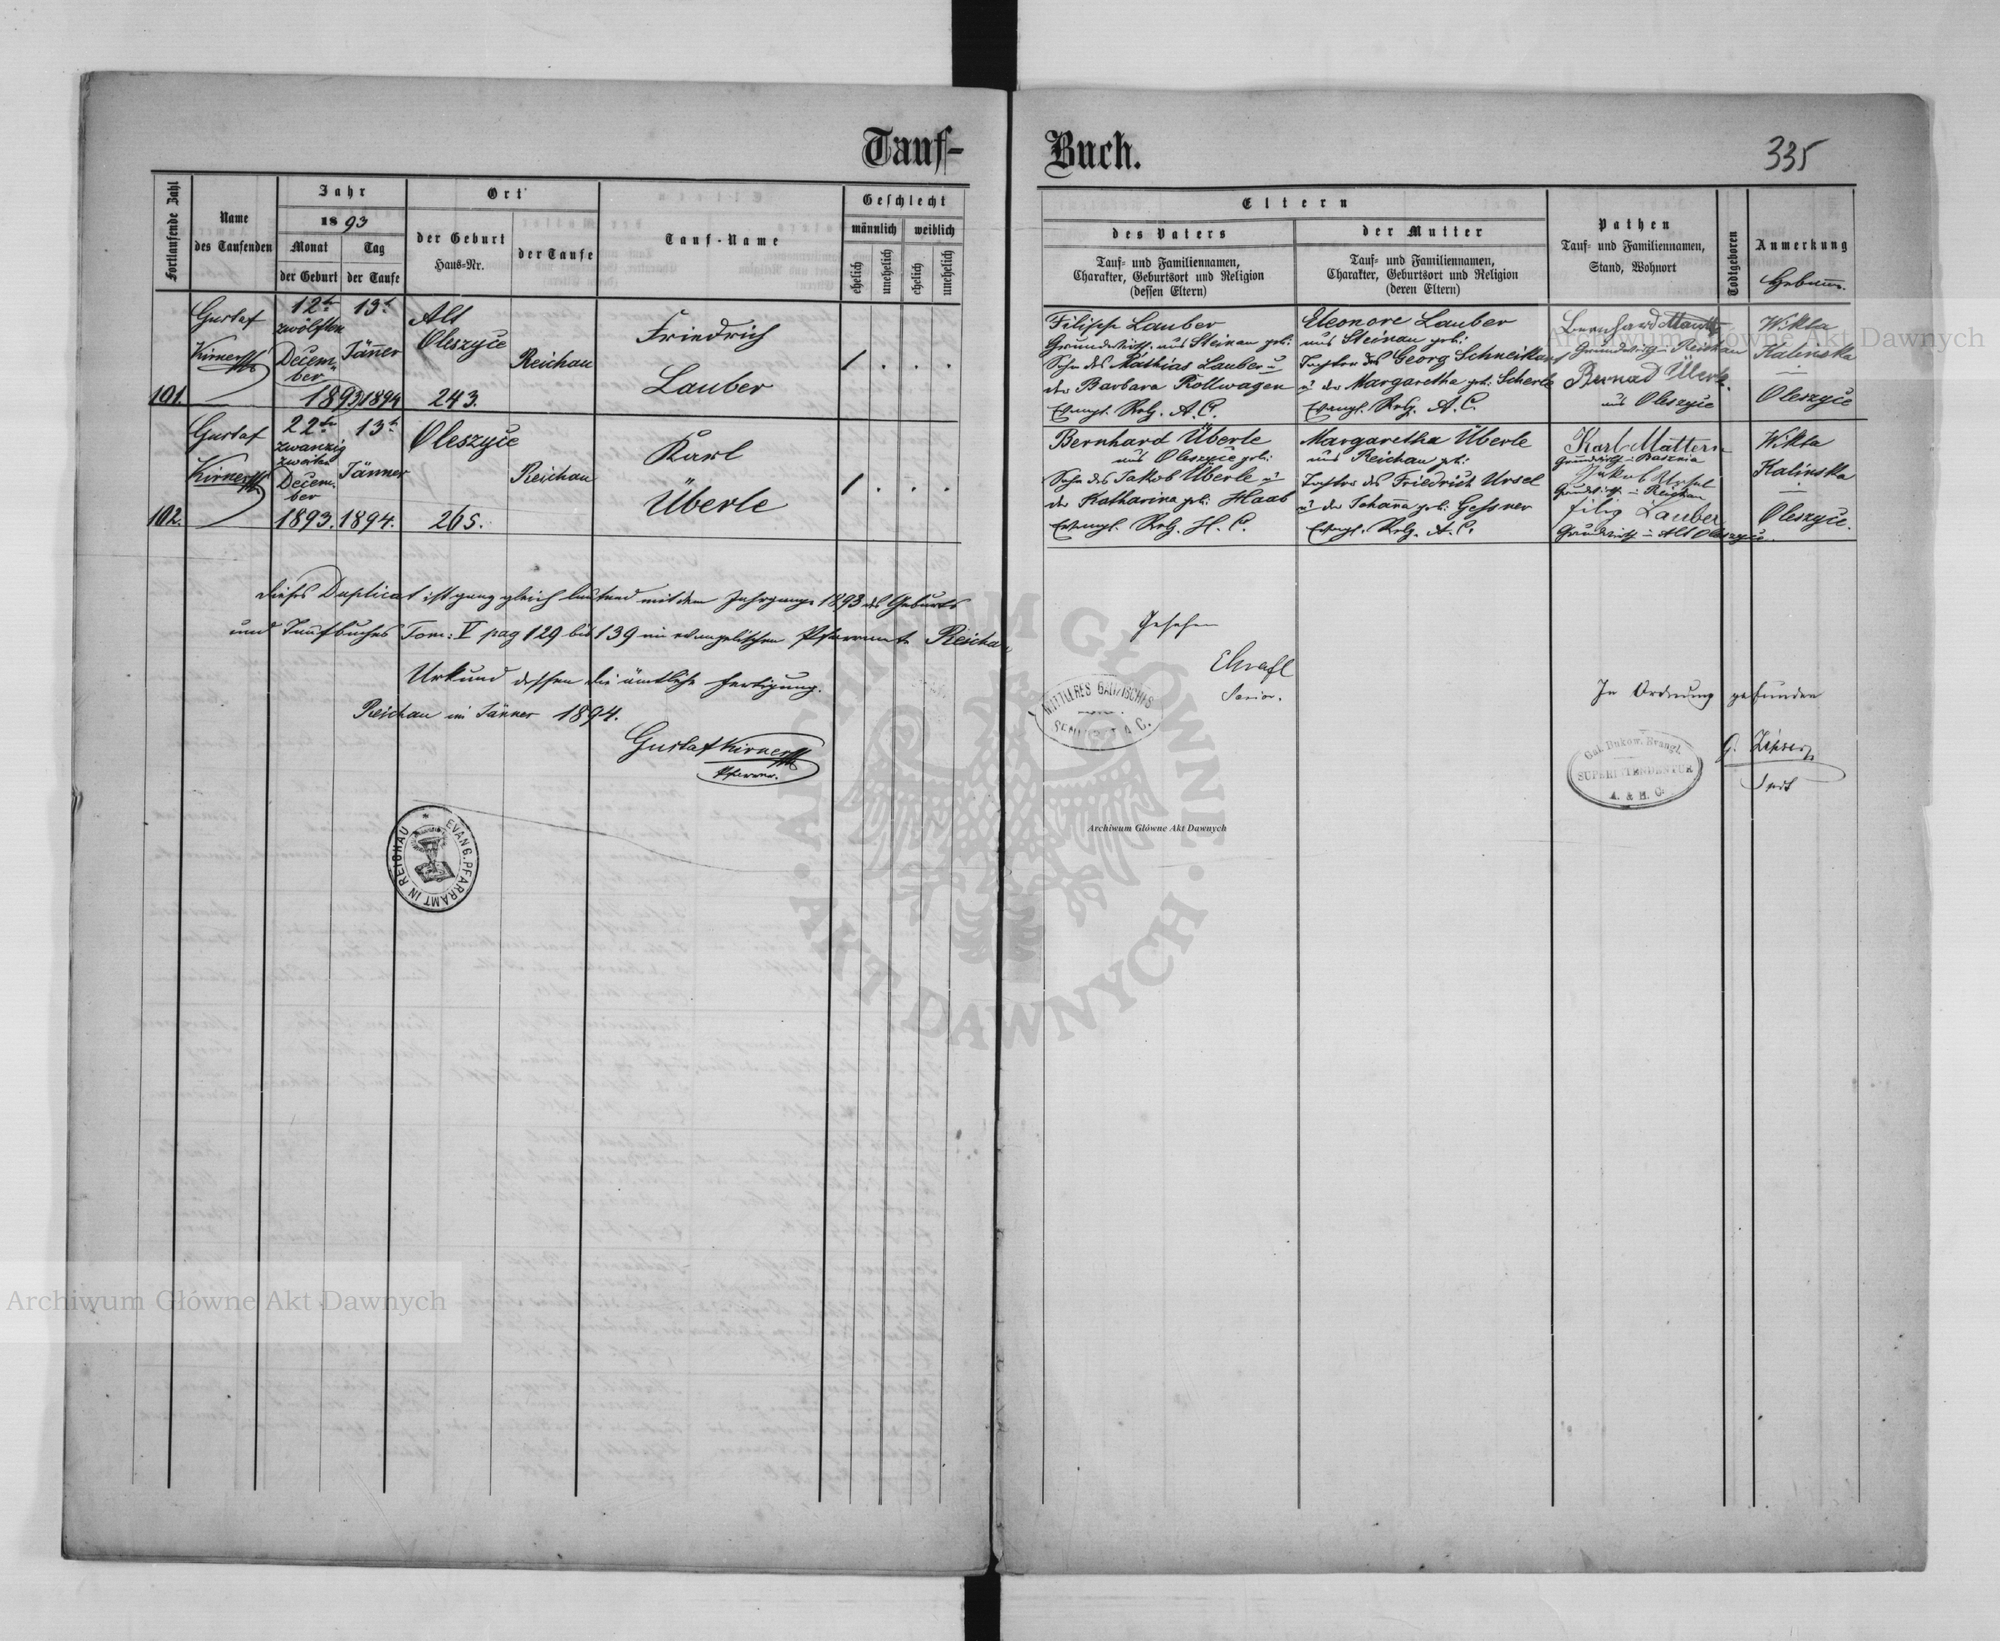 Tauf-
Buch.
335
Fortlaufende Zahl
Name
des Taufenden
Jahr
1893
Monat
Tag
der Geburt
der Taufe
Ort
der Geburt
Haus-Nr.
der Taufe
Tauf-Name
Geschlecht
männlich
weiblich
ehelich
unehelich
ehelich
unehelich
Eltern
des Vaters
Tauf- und Familiennamen,
Charakter, Geburtsort und Religion
(dessen Eltern)
der Mutter
Tauf- und Familiennamen,
Charakter, Geburtsort und Religion
(deren Eltern)
Pathen
Tauf- und Familiennamen,
Stand, Wohnort
Todtgeboren
Anmerkung
101.
Gustaf
Kirner
12te
zwölften
Decem-
ber
1893
13t
Jänner
1894
Alt
Oleszyce
243.
Reichau
Friedrich
Lauber
1 . . .
Filipp Lauber
Grundwirth aus Steinau geb:
Sohn des Mathias Lauber u
der Barbara Rollwagen
Evangl. Relg. A. C.
Eleonore Lauber
aus Steinau geb:
Tochter des Georg Schneikart
u der Margaretha geb: Scherle
Evangl. Relg. A. C.
Bernhard
Grundwirth in Reichau
Bernad Überle
aus Oleszyce
Wikta
Kalinska
Oleszyce
102.
Gustaf
Kirner
22te
zwanzig
zweiten
Decem-
ber
1893.
13t
Jänner
1894.
Oleszyce
265.
Reichau
Karl
Überle
1 . . .
Bernhard Überle
aus Oleszyce geb:
Sohn des Jakob Überle u
der Katharina geb: Haas
Evangl. Relg. H. C.
Margaretha Überle
aus Reichau geb:
Tochter des Friedrich Ursel
u der Johanna geb: Gessner
Evangl. Relg. A. C.
Karl Mattern
Grundwirth in Basznia
Jakob Ursel
Grundwirth in Reichau
Filip Lauber
Grundwirth in Alt Oleszyce
Wikta
Kalinska
Oleszyce.
Dieses Duplicat ist ganz gleich lautend mit dem Jahrgange 1893 des Geburts
und Taufbuches Tom: V pag 129 bis 139 im evangelischen Pfarramte Reichau
Urkund dessen die ämtliche Fertigung.
Reichau im Jänner 1894.
Gustaf Kirner
Pfarrer.
EVANG. PFARRAMT IN REICHAU
Gesehen
Senior.
MITTLERES GALIZISCHES
SENIORAT A. C.
In Ordnung gefunden
Gal. Bukow. Evangl.
SUPERINTENDENTUR
A. & H. C.
Archiwum Główne Akt Dawnych
Archiwum Główne Akt Dawnych
Archiwum Główne Akt Dawnych
ARCHIWUM GŁÓWNE
AKT DAWNYCH